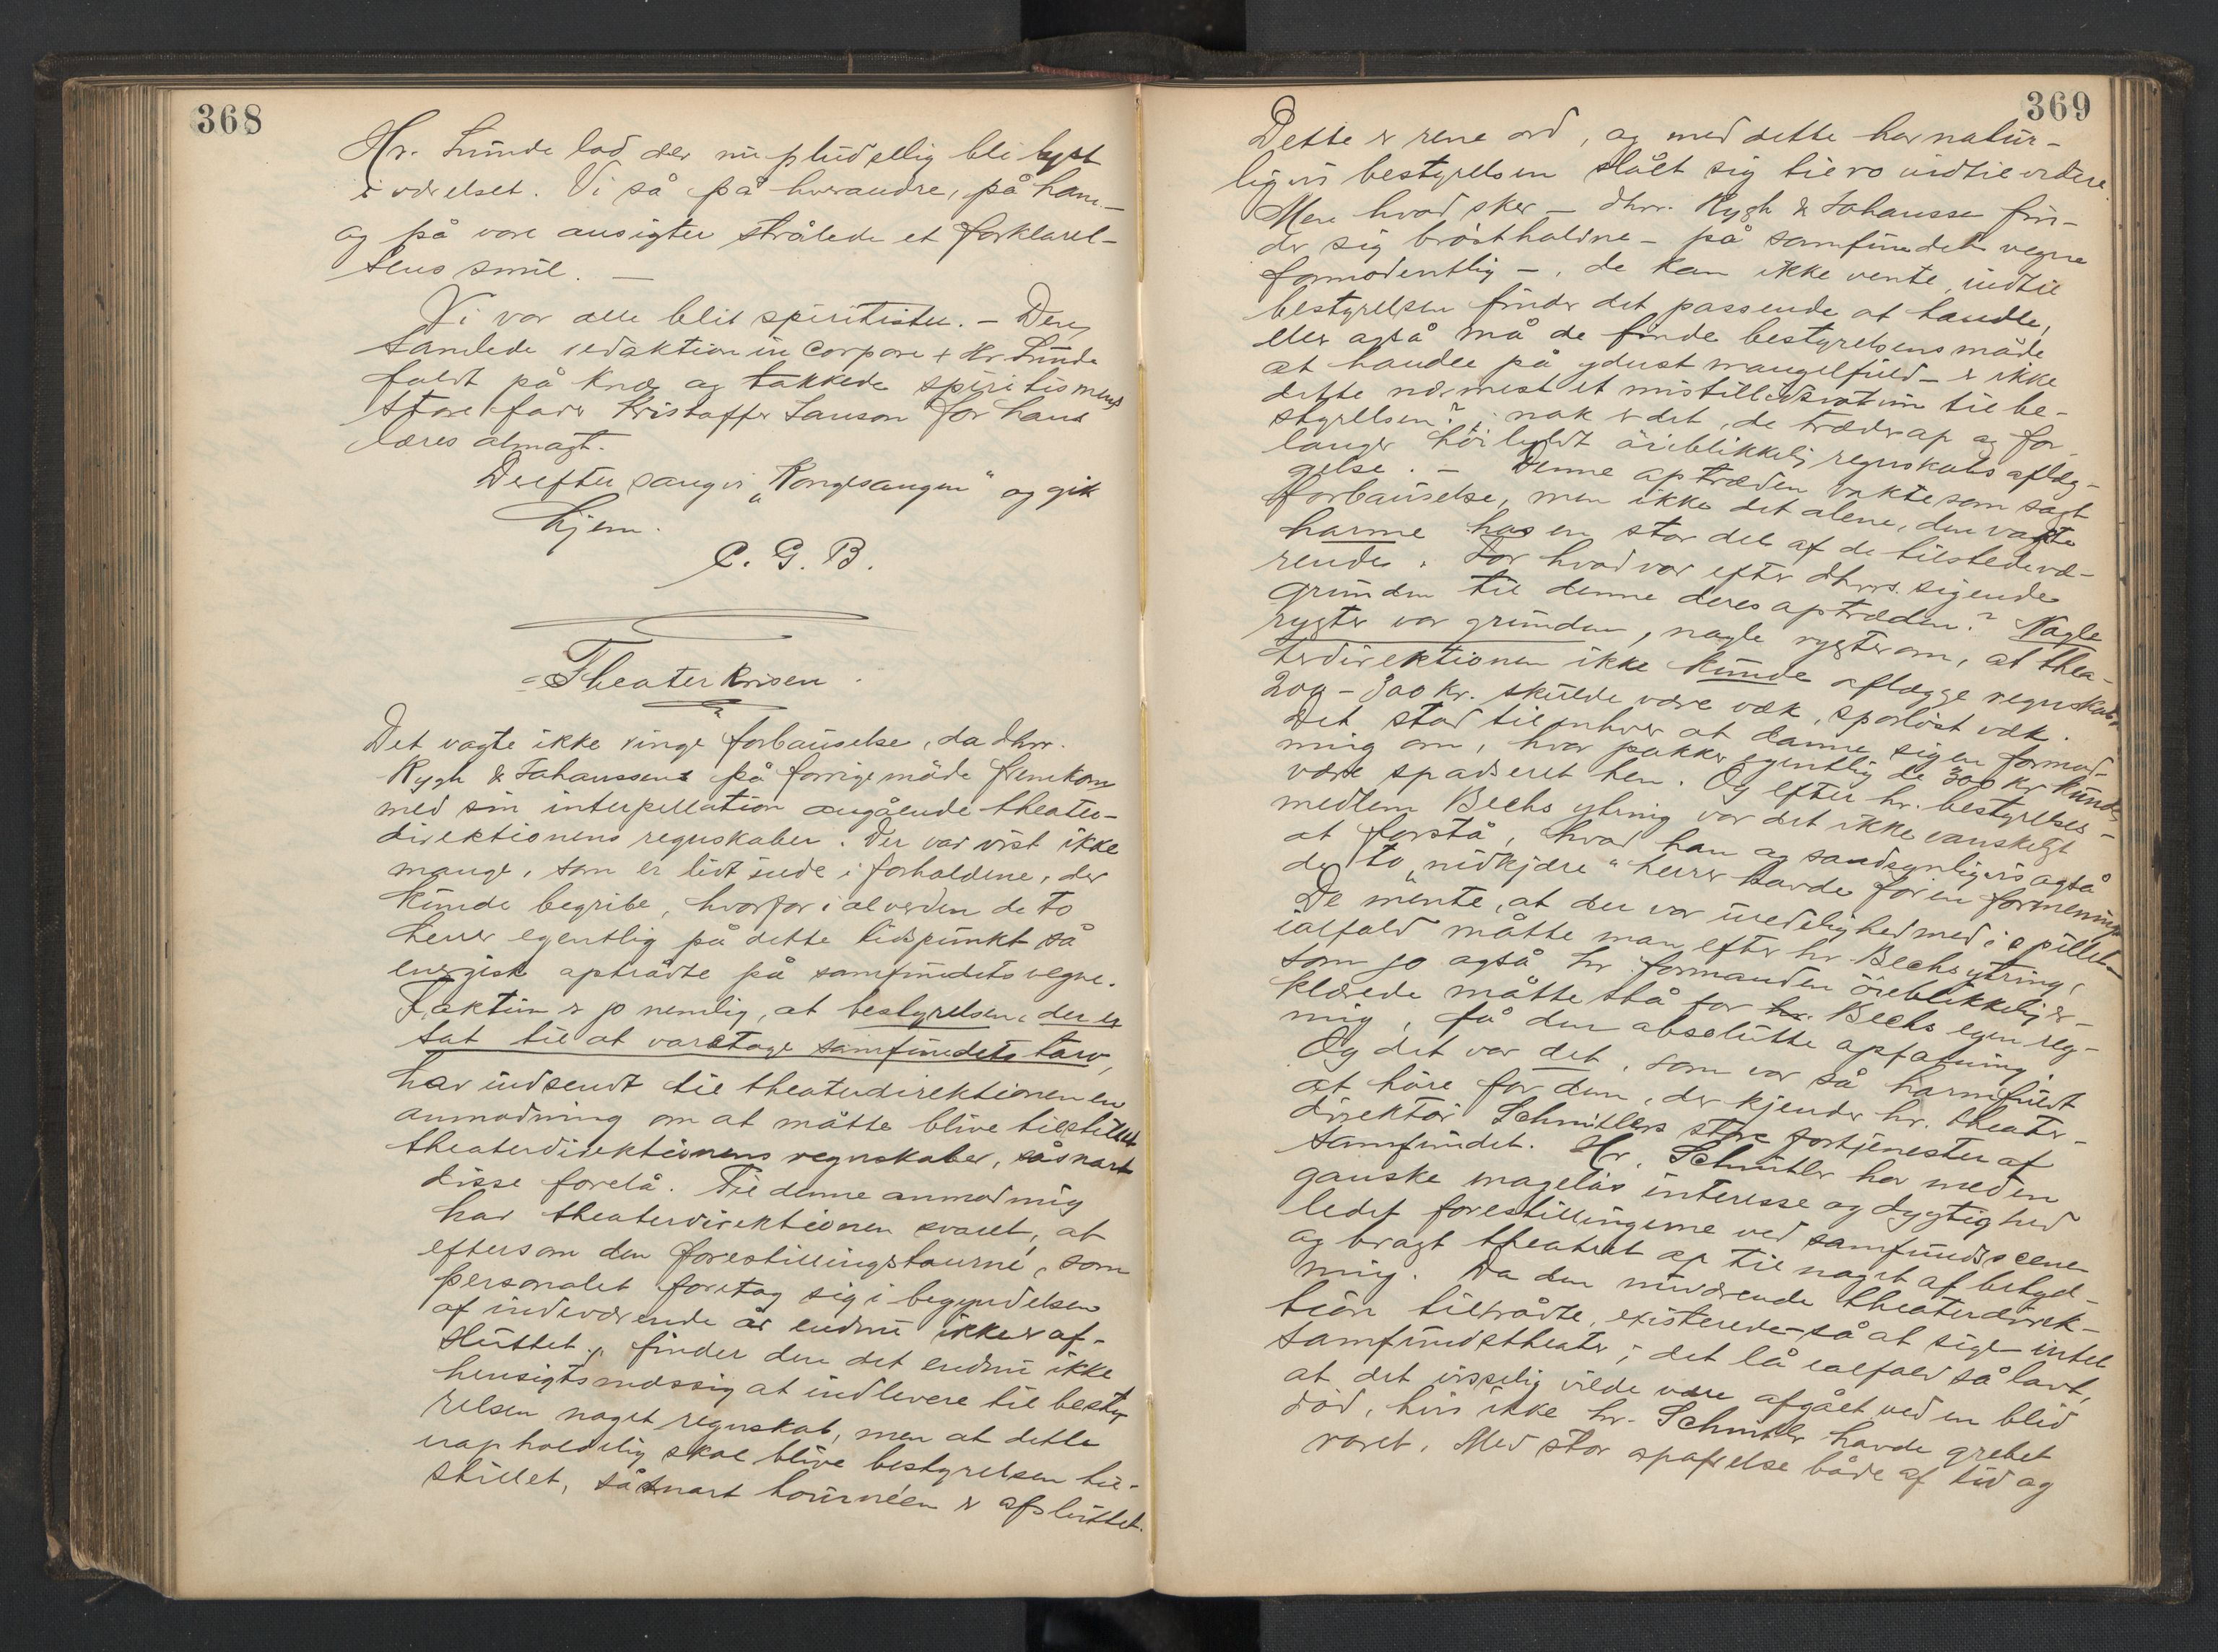 368
Hr. Lunde lod der nu pludsellig bli lyst
i værelset. Vi så på hverandre, på ham –
og på vore ansigter strålede et forklarel-
sens smil. –
Vi var alle blit spiritister. – Den
samlede redaktion in corpore + Hr. Lunde
faldt på knæ og takkede spiritismens
store Kristoffer Janson for hans
læres almagt.
Derefter sang vi „Kongesangen“ og gik
hjem.
C. G. B.
Theaterkrisen.
Det vagte ikke ringe forbauselse, da dhrr.
Rygh & Johanssens på forrige möde fremkom
med sin interpellation angående theater-
direktionens regnskaber. Der var vist ikke
mange, som er lidt inde i forholdene, der
kunde begribe, hvorfor i alverden de to
herrer egentlig på dette tidspunkt så
energisk optrådte på samfundets vegne.
Faktum er jo nemlig, at bestyrelsen, der er
sat til at varetage samfundets tarv,
har indsendt til theaterdirektionen en
anmodning om at måtte blive tilstillet
theaterdirektionens regnskaber, såsnart
disse forelå. Til denne anmodning
har theaterdirektionen svaret, at
eftersom den forestillingstourné, som
personalet foretog sig i begyndelsen
af indeværende år endnu ikke er af-
sluttet, finder den det endnu ikke
hensigtsmæssig at indlevere til besty-
relsen noget regnskab, men at dette
uopholdelig skal blive bestyrelsen til-
stillet, så snart tournéen er afsluttet.
369
Dette er rene ord, og med dette har natur-
ligvis bestyrelsen slået sig tilro indtil videre
Men hvad sker – dhrr. Rygh & Johanssen fin-
der sig brøstholdne – på samfundets vegne
formodentlig –, de kan ikke vente, indtil
bestyrelsen finder det passende at handle,
eller også må de finde bestyrelsens måde
at handle på yderst mangelfuld – er ikke
dette nærmest et mistillidsvotum til be-
styrelsen? nok er det, de træder op og for-
langer höilydt öieblikkelig regnskabsaflæg-
gelse. – Denne optræden vakte som sagt
forbauselse, men ikke det alene, den vagte
harme hos en stor del af de tilstedevæ-
rende. For hvad var efter dhrrs. sigende
grunden til denne deres optræden? Nogle
rygter var grunden, nogle rygter om, at thea-
terdirektionen ikke kunde aflægge regnskab
200 – 300 kr. skulde være væk, sporløst væk.
Det stod til enhver at danne sig en formod-
ning om, hvor pokker egentlig de 300 kr. kunde
være spadseret hen. Og efter hr. bestyrelses-
medlem Bechs ytring var det ikke vanskeligt
at forstå, hvad han og sandsynligvis også
de to „nidkjære“ herrer havde for en formening.
De mente, at der var uredelighed med i spillet –
ialfald måtte man efter hr. Bechs ytring,
som jo også hr. formanden öieblikkelig er-
klærede måtte stå for hr. Bechs egen reg-
ning, få den absolutte opfatning.
Og det var det, som var så harmfuldt
at höre for dem, der kjender hr. theater-
direktör Schmitlers store fortjenester af
samfundet. Hr. Schmitler har med en
ganske mageløs interesse og dygtighed
ledet forestillingerne ved samfundsscenen
og bragt theatret op til noget af betyd-
ning. Da den nuværende theaterdirek-
tion tiltrådte, existerede – så at sige – intet
samfundstheater; det lå ialfald så lavt,
at det visselig vilde være afgået ved en blid
död, hvis ikke hr. Schmitler havde grebet
roret. Med stor opofrelse både af tid og